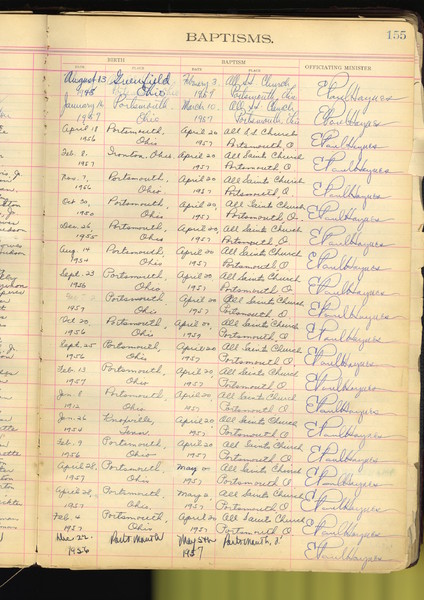 BAPTISMS.
155
BIRTH
BAPTISM
OFFICIATING MINISTER
DATE PLACE DATE PLACE
August 13 Greenfield, February 3, All SS Church
1945 Ohio 1957 Portsmouth, Ohio E Paul Haynes
January 16 Portsmouth, March 10, All SS Church
1957 Ohio 1957 Portsmouth, Ohio E Paul Haynes
April 18 Portsmouth, April 20 All SS Church
1956 Ohio 1957 Portsmouth, O E Paul Haynes
Feb. 8, Ironton, Ohio April 20 All Saints Church
1957 1957 Portsmouth, O E Paul Haynes
Nov. 7, Portsmouth, April 20, All Saints Church
1956 Ohio 1957 Portsmouth, O E Paul Haynes
Oct 30, Portsmouth, April 20, All Saints Church
1950 Ohio 1957 Portsmouth, O. E Paul Haynes
Dec. 26, Portsmouth, April 20, All Saints Church
1955 Ohio 1957 Portsmouth, O E Paul Haynes
Aug. 14 Portsmouth, April 20 All Saints Church
1954 Ohio 1957 Portsmouth, O E Paul Haynes
Sept. 23 Portsmouth, April 20, All Saints Church
1956 Ohio 1957 Portsmouth, O E Paul Haynes
Portsmouth, April 20 All Saints Church
1957 Ohio 1957 Portsmouth, O E Paul Haynes
Oct 20 Portsmouth, April 20, All Saints Church
1956 Ohio Portsmouth, O E Paul Haynes
Sept. 25 Portsmouth, April 20 All Saints Church
1956 Ohio 1957 Portsmouth, O E Paul Haynes
Feb. 13 Portsmouth, April 20, All Saints Church
1957 Ohio 1957 Portsmouth, O E Paul Haynes
Jan. 8 Portsmouth, April 20 All Saints Church
1912 Ohio 1957 Portsmouth, O E Paul Haynes
Jan. 26 Knoxville, April 20, All Saints Church
1954 Tenn 1957 Portsmouth, O E Paul Haynes
Feb. 9 Portsmouth, April 20, All Saints Church
1956 Ohio 1957 Portsmouth, O E Paul Haynes
April 28, Portsmouth, May All Saints Church
1957 Ohio 1957 Portsmouth, O E Paul Haynes
April 21, Portsmouth, May 2, All Saints Church
1957 Ohio 1957 Portsmouth, O E Paul Haynes
Feb. 4 Portsmouth, April 20 All Saints Church
1957 Ohio 1957 Portsmouth, O E Paul Haynes
Dec 22, Portsmouth May 5th Portsmouth, O.
1956 1957 E Paul Haynes